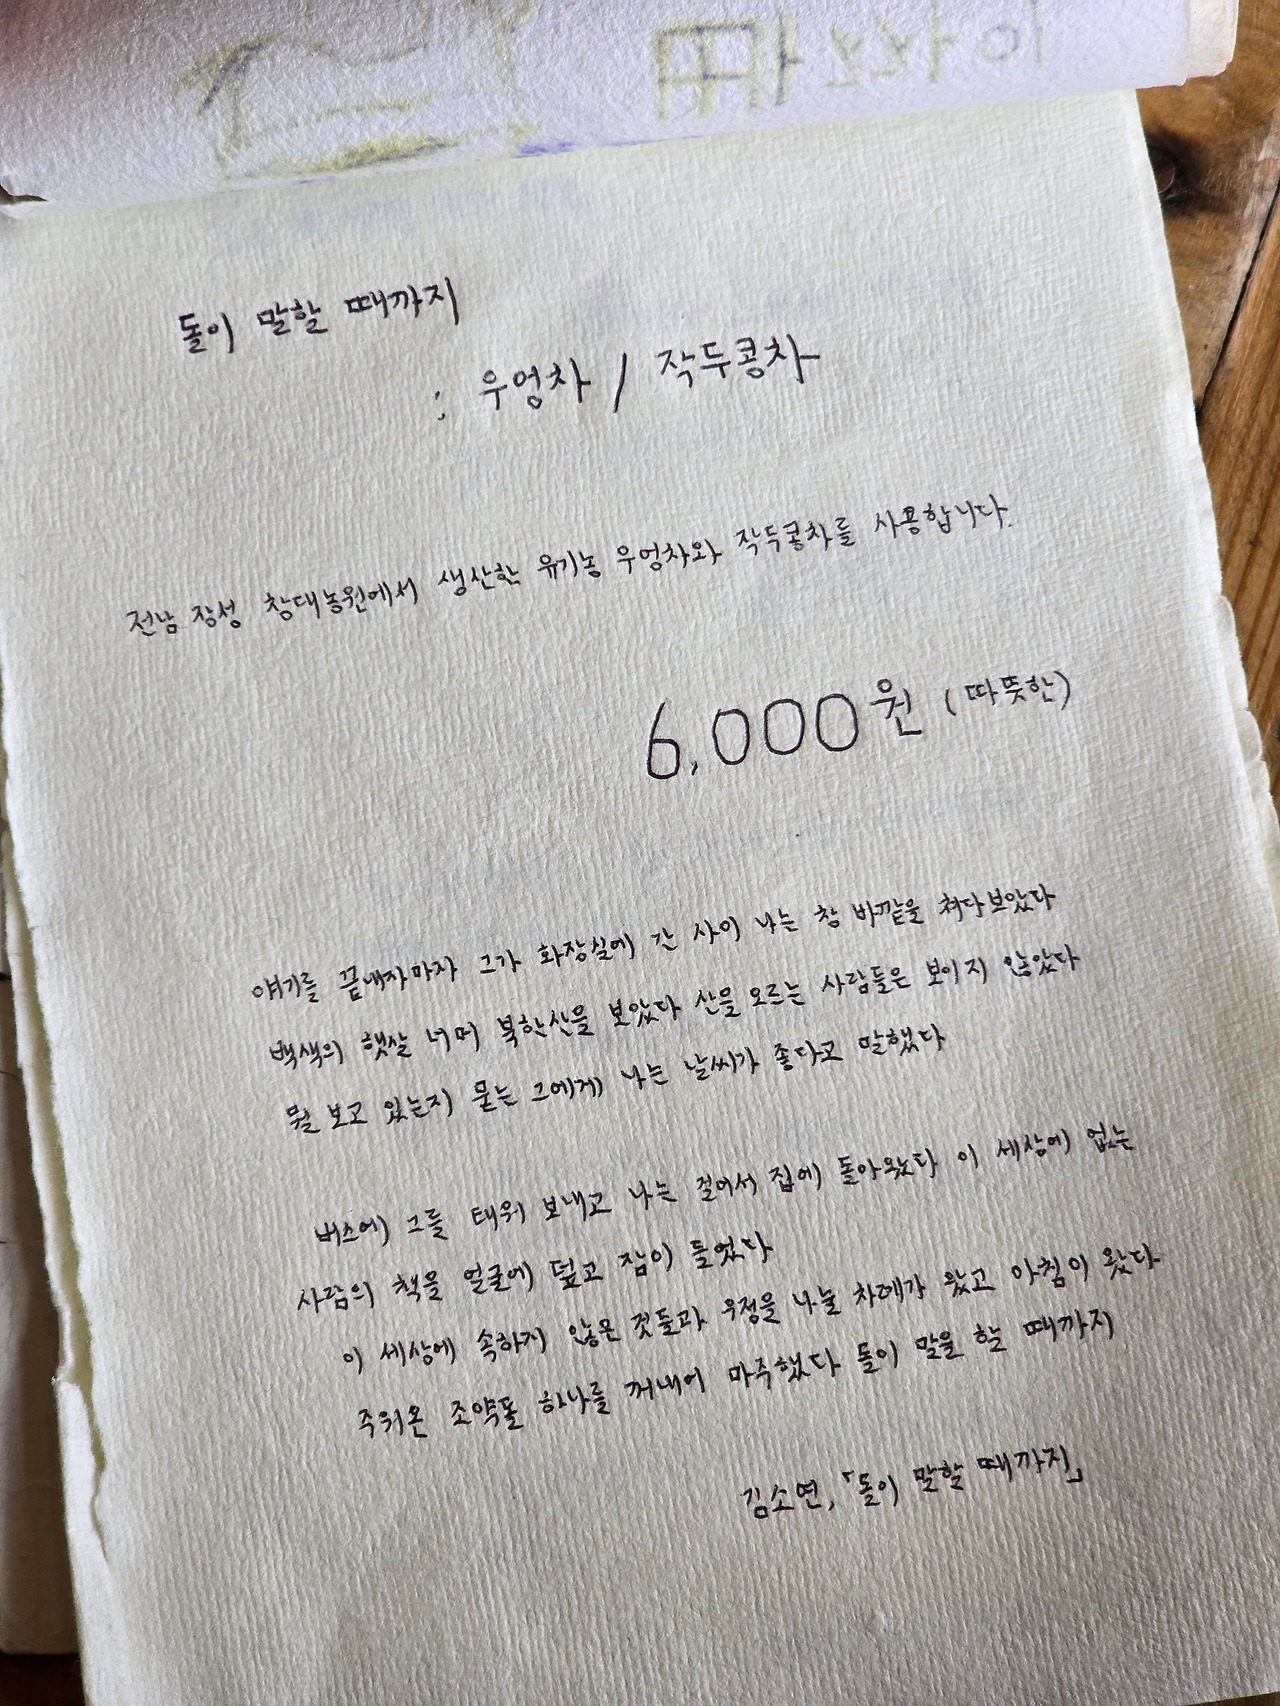 돌이 말할 때까지
: 우엉차 / 작두콩차
전남 장성 창대농원에서 생산한 유기농 우엉차와 작두콩차를 사용합니다.
6,000원 (따뜻한)
얘기를 끝내자마자 그가 화장실에 간 사이 나는 창 바깥을 쳐다보았다
백색의 햇살 너머 북한산을 보았다 산을 오르는 사람들은 보이지 않았다
뭘 보고 있는지 묻는 그에게 나는 날씨가 좋다고 말했다
버스에 그를 태워 보내고 나는 걸어서 집에 돌아왔다 이 세상에 없는
사람의 책을 얼굴에 덮고 잠이 들었다
이 세상에 속하지 않은 것들과 우정을 나눌 차례가 왔고 아침이 왔다
주워온 조약돌 하나를 꺼내어 마주했다 돌이 말을 할 때까지
김소연, 「돌이 말할 때까지」